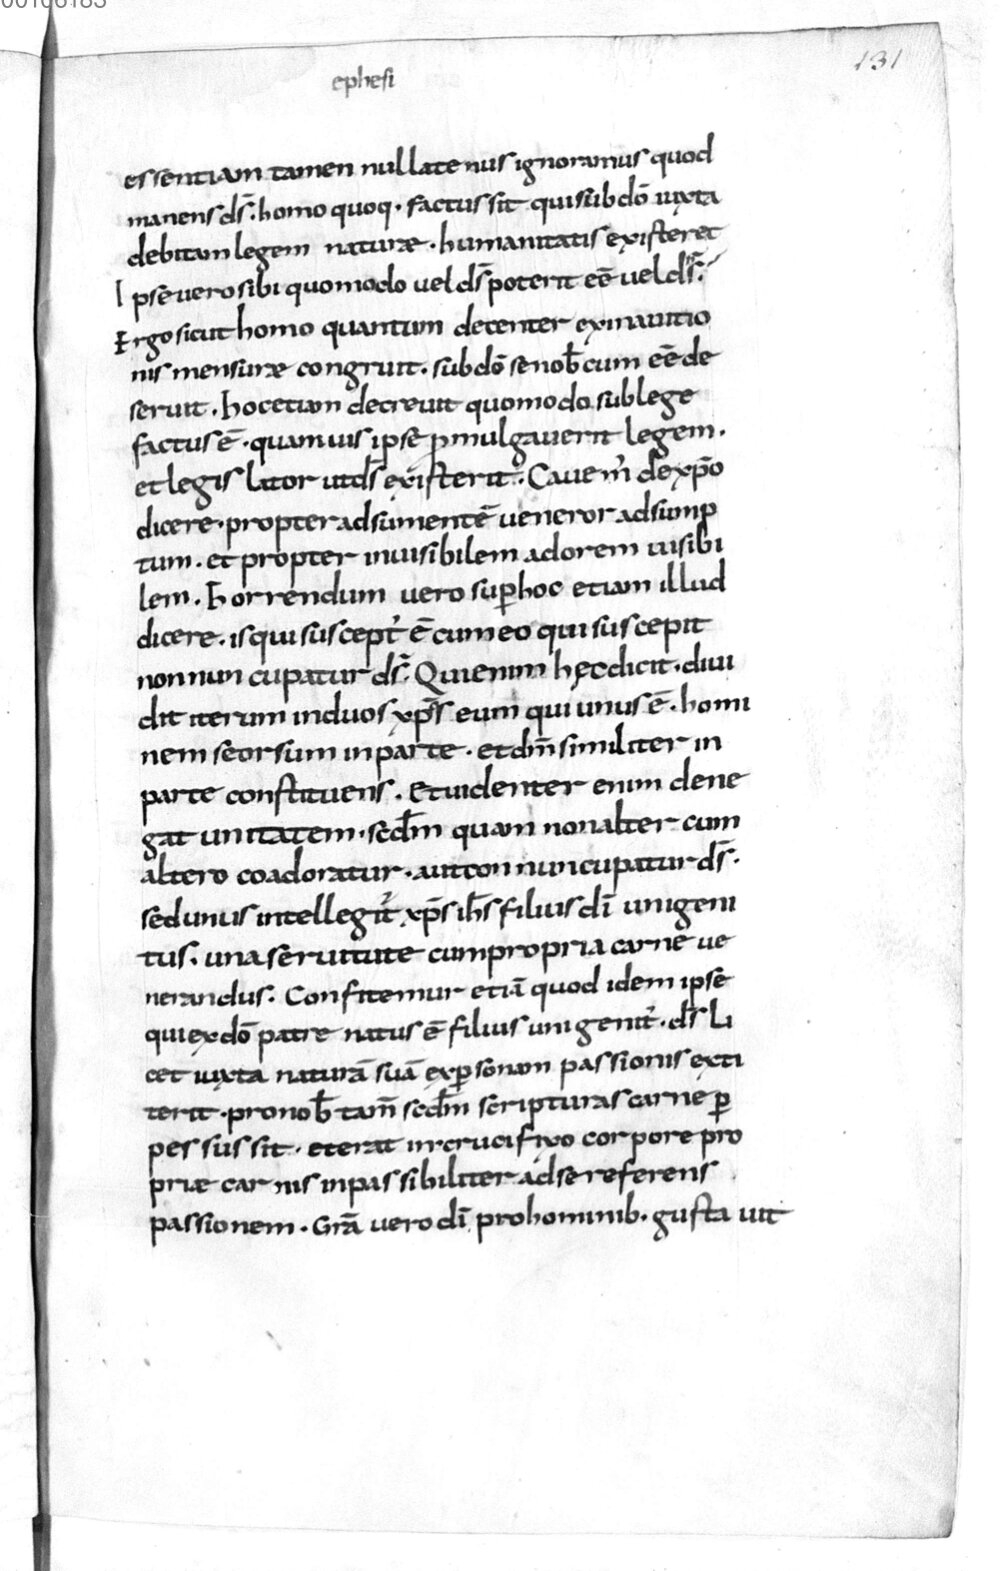 00106183
131
ephesi
essentiam tamen nullatenus ignoramus quod
manens ds̄. homo quoq. factus sit qui sub dō iuxta
debitam legem naturæ. humanitatis existeret
Ipse vero sibi quomodo vel ds̄ poterit eē vel dn̄s.
Ergo sicut homo quantum decenter exinanitio
nis mensuræ congruit. sub dō se nob̄cum eē de
seruit. hoc etiam decrevit quomodo sub lege
factus ē. quamvis ipse ꝓmulgaverit legem.
et legis lator ut ds̄ existerit. Cavem̄ de xp̄o
dicere. propter adsumentē veneror adsump
tum. et propter invisibilem adorem visibi
lem. Horrendum vero suꝑ hoc etiam illud
dicere. is qui susceptꝰ ē cum eo qui suscepit
non nuncupatur ds̄. Qui enim hęc dicit. divi
dit iterum in duos xp̄s eum qui unus ē. homi
nem seorsum in parte. et dm̄ similiter in
parte constituens. Evidenter enim dene
gat unitatem. scdm̄ quam non alter cum
altero coadoratur. aut con nuncupatur ds̄.
sed unus intellegit᷑ xp̄s ih̄s filius dī unigeni
tus. una servitute cum propria carne ve
nerandus. Confitemur etiā quod idem ipse
qui ex dō patre natus ē filius unigenit᷒. ds̄ li
cet iuxta naturā suā expersonam passionis exti
terit. pro nob̄ tam̄ scdm̄ scripturas carne ꝑ
pessus sit. et erat in crucifixo corpore pro
priæ carnis inpassibiliter ad se referens
passionem. Grā vero dī pro hominib. gustavit